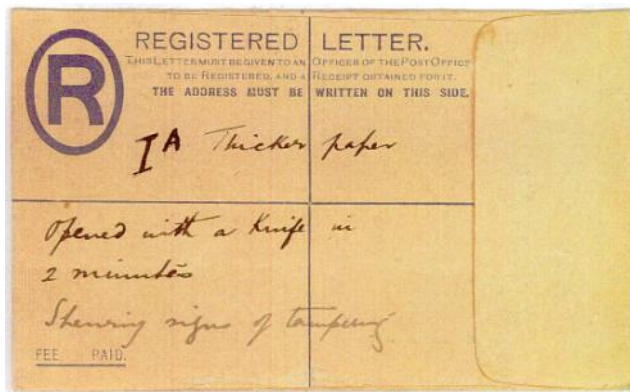 R
REGISTERED LETTER.
THIS LETTER MUST BE GIVEN TO AN OFFICER OF THE POST OFFICE
TO BE REGISTERED, AND A RECEIPT OBTAINED FOR IT.
THE ADDRESS MUST BE WRITTEN ON THIS SIDE.
IA Thicker paper
Opened with a Knife in
2 minutes
Shewing signs of tampering
FEE PAID.